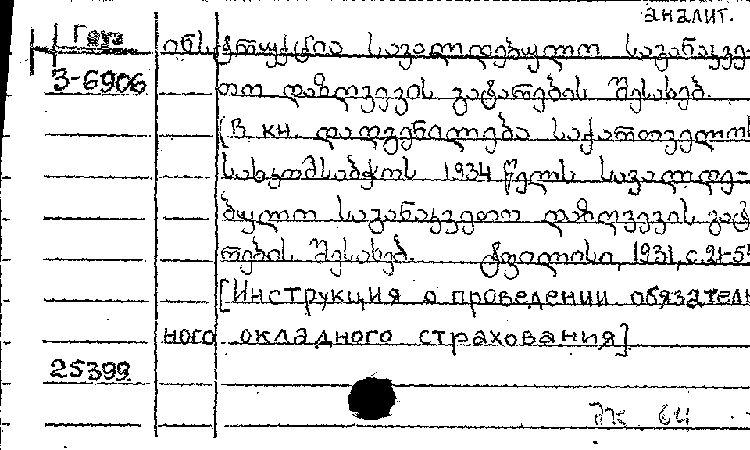 аналит.
Груз
ინსტრუქცია სავალდებულო საგანაკვე-
3-6906
თო დაზღვევის გატარების შესახებ.
(В кн. დადგენილება საქართველოს
სახკომსაბჭოს 1934 წელს სავალდე-
ბულო საგანაკვეთო დაზღვევის გატ
რების შესახებ. ტფილისი, 1931, с. 21-5
[Инструкция о проведении обязатель
ного окладного страхования]
25399
64